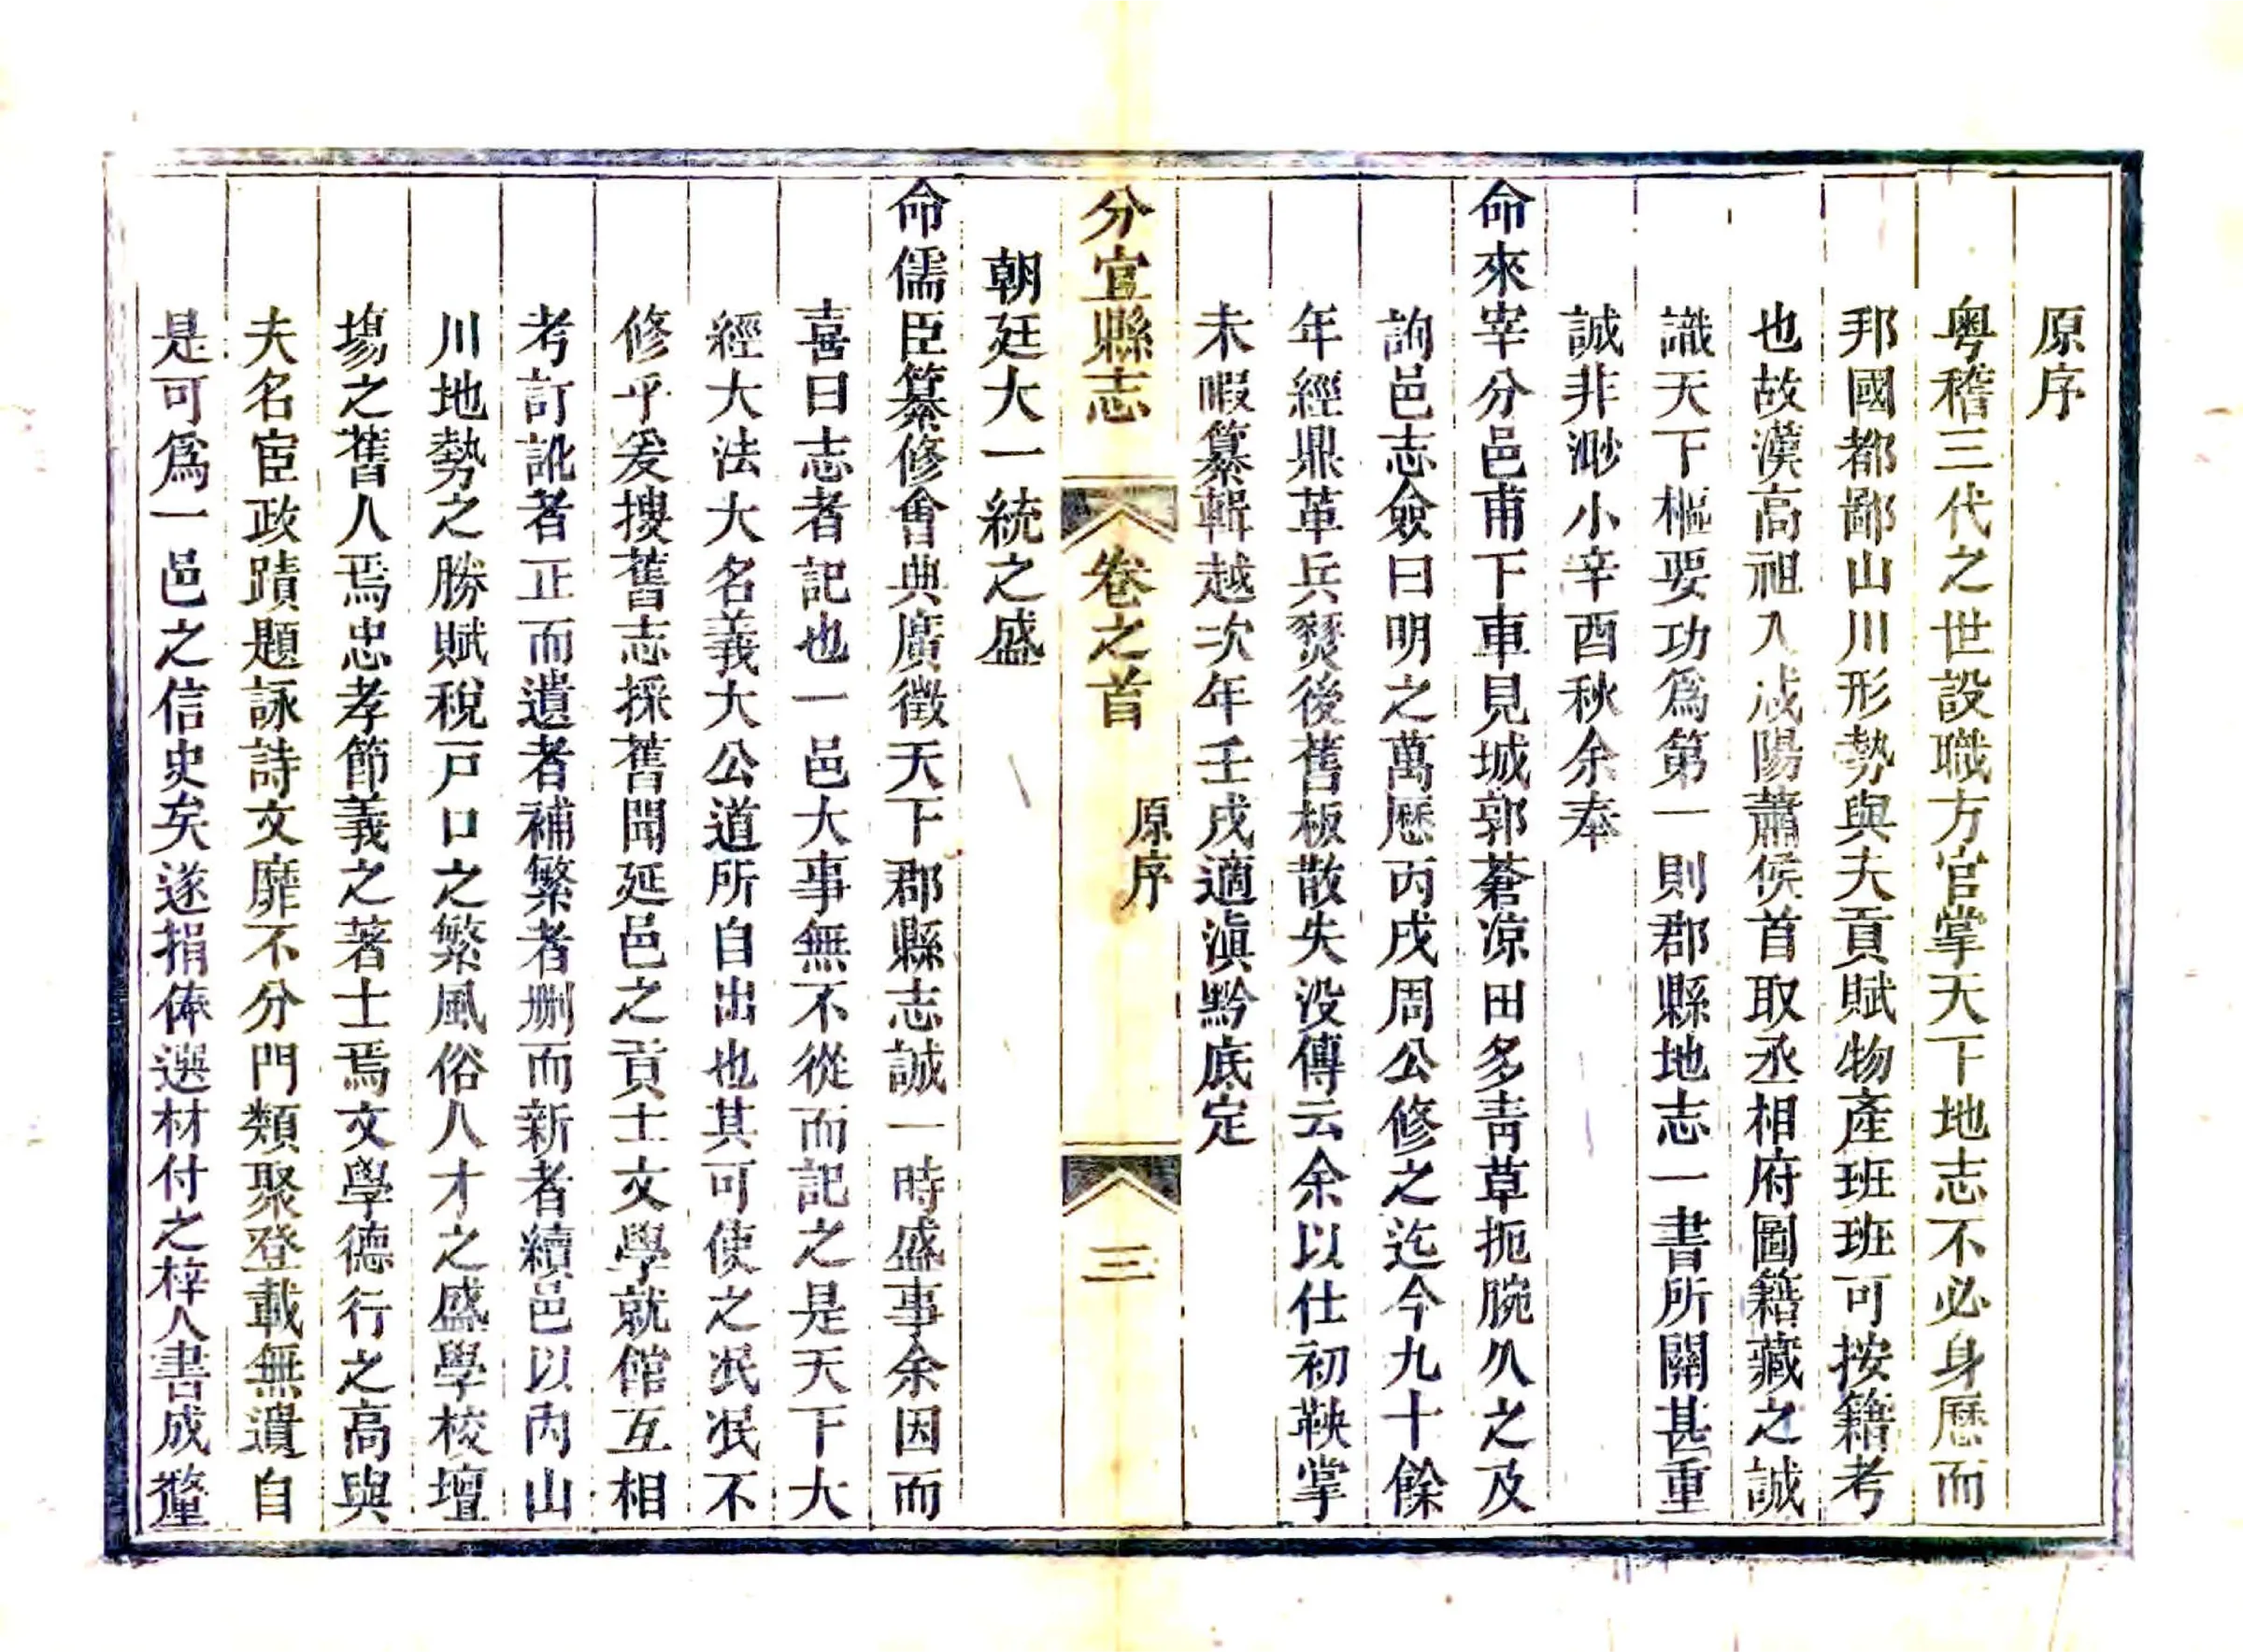 原序
粤稽三代之世設職方官掌天下地志不必身歷而
邦國都鄙山川形勢與夫貢賦物產班班可按籍考
也故漢高祖入咸陽蕭侯首取丞相府圖籍藏之誠
識天下樞要功爲第一則郡縣地志一書所關甚重
誠非渺小辛酉秋余奉
命來宰分邑甫下車見城郭蒼凉田多靑草扼腕久之及
詢邑志僉曰明之萬歷丙戌周公修之迄今九十餘
年經鼎革兵燹後舊板散失没傳云余以仕初鞅掌
未暇纂輯越次年壬戌適滇黔底定
分宜縣志
卷之首
原序
三
朝廷大一統之盛
命儒臣纂修會典廣徵天下郡縣志誠一時盛事余因而
喜曰志者記也一邑大事無不從而記之是天下大
經大法大名義大公道所自出也其可使之泯泯不
修乎爰搜舊志採舊聞延邑之貢士文學就館互相
考訂訛者正而遺者補繁者刪而新者續邑以內山
川地勢之勝賦稅戸口之繁風俗人才之盛學校壇
塲之舊人焉忠孝節義之著士焉文學德行之高與
夫名宦政蹟題詠詩文靡不分門類聚登載無遺自
是可爲一邑之信史矣遂捐俸選材付之梓人書成釐